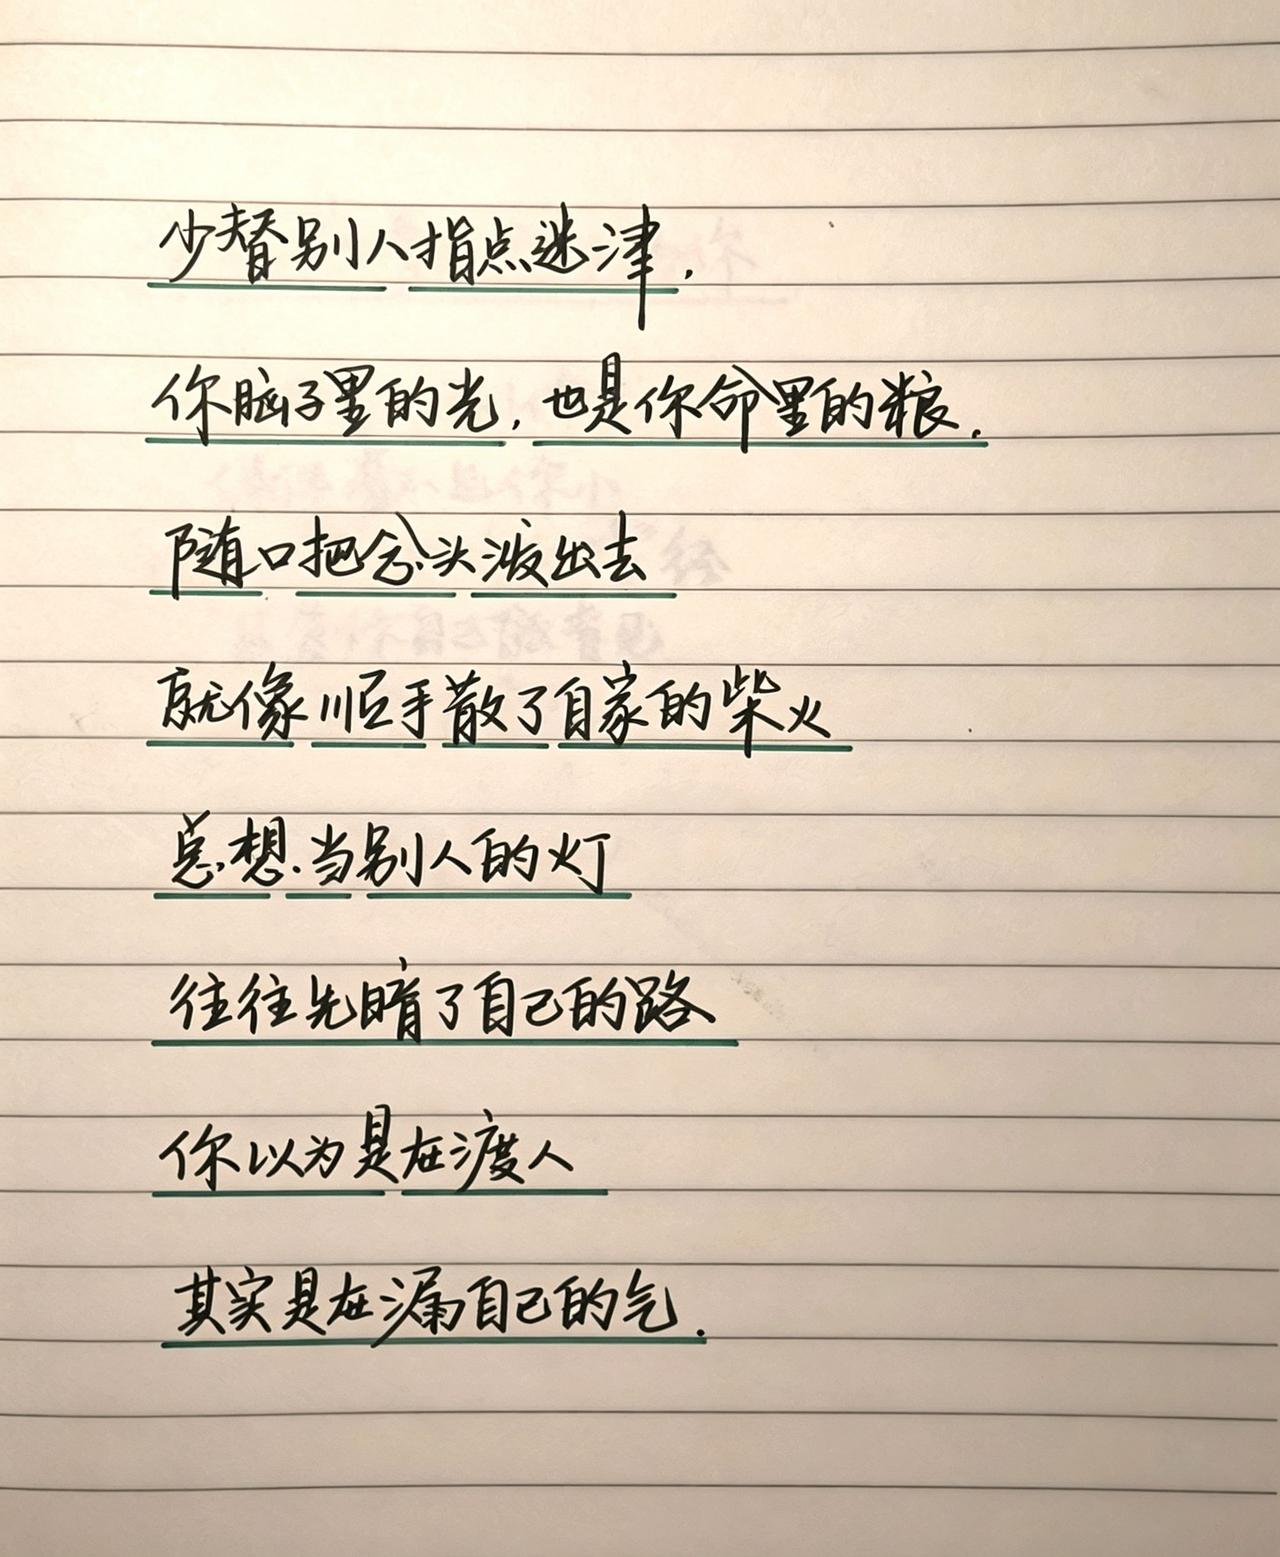 少替别人指点迷津,
你脑子里的光,也是你命里的粮.
随口把念头泼出去
就像顺手散了自家的柴火
总想当别人的灯
往往先暗了自己的路
你以为是在渡人
其实是在漏自己的气.